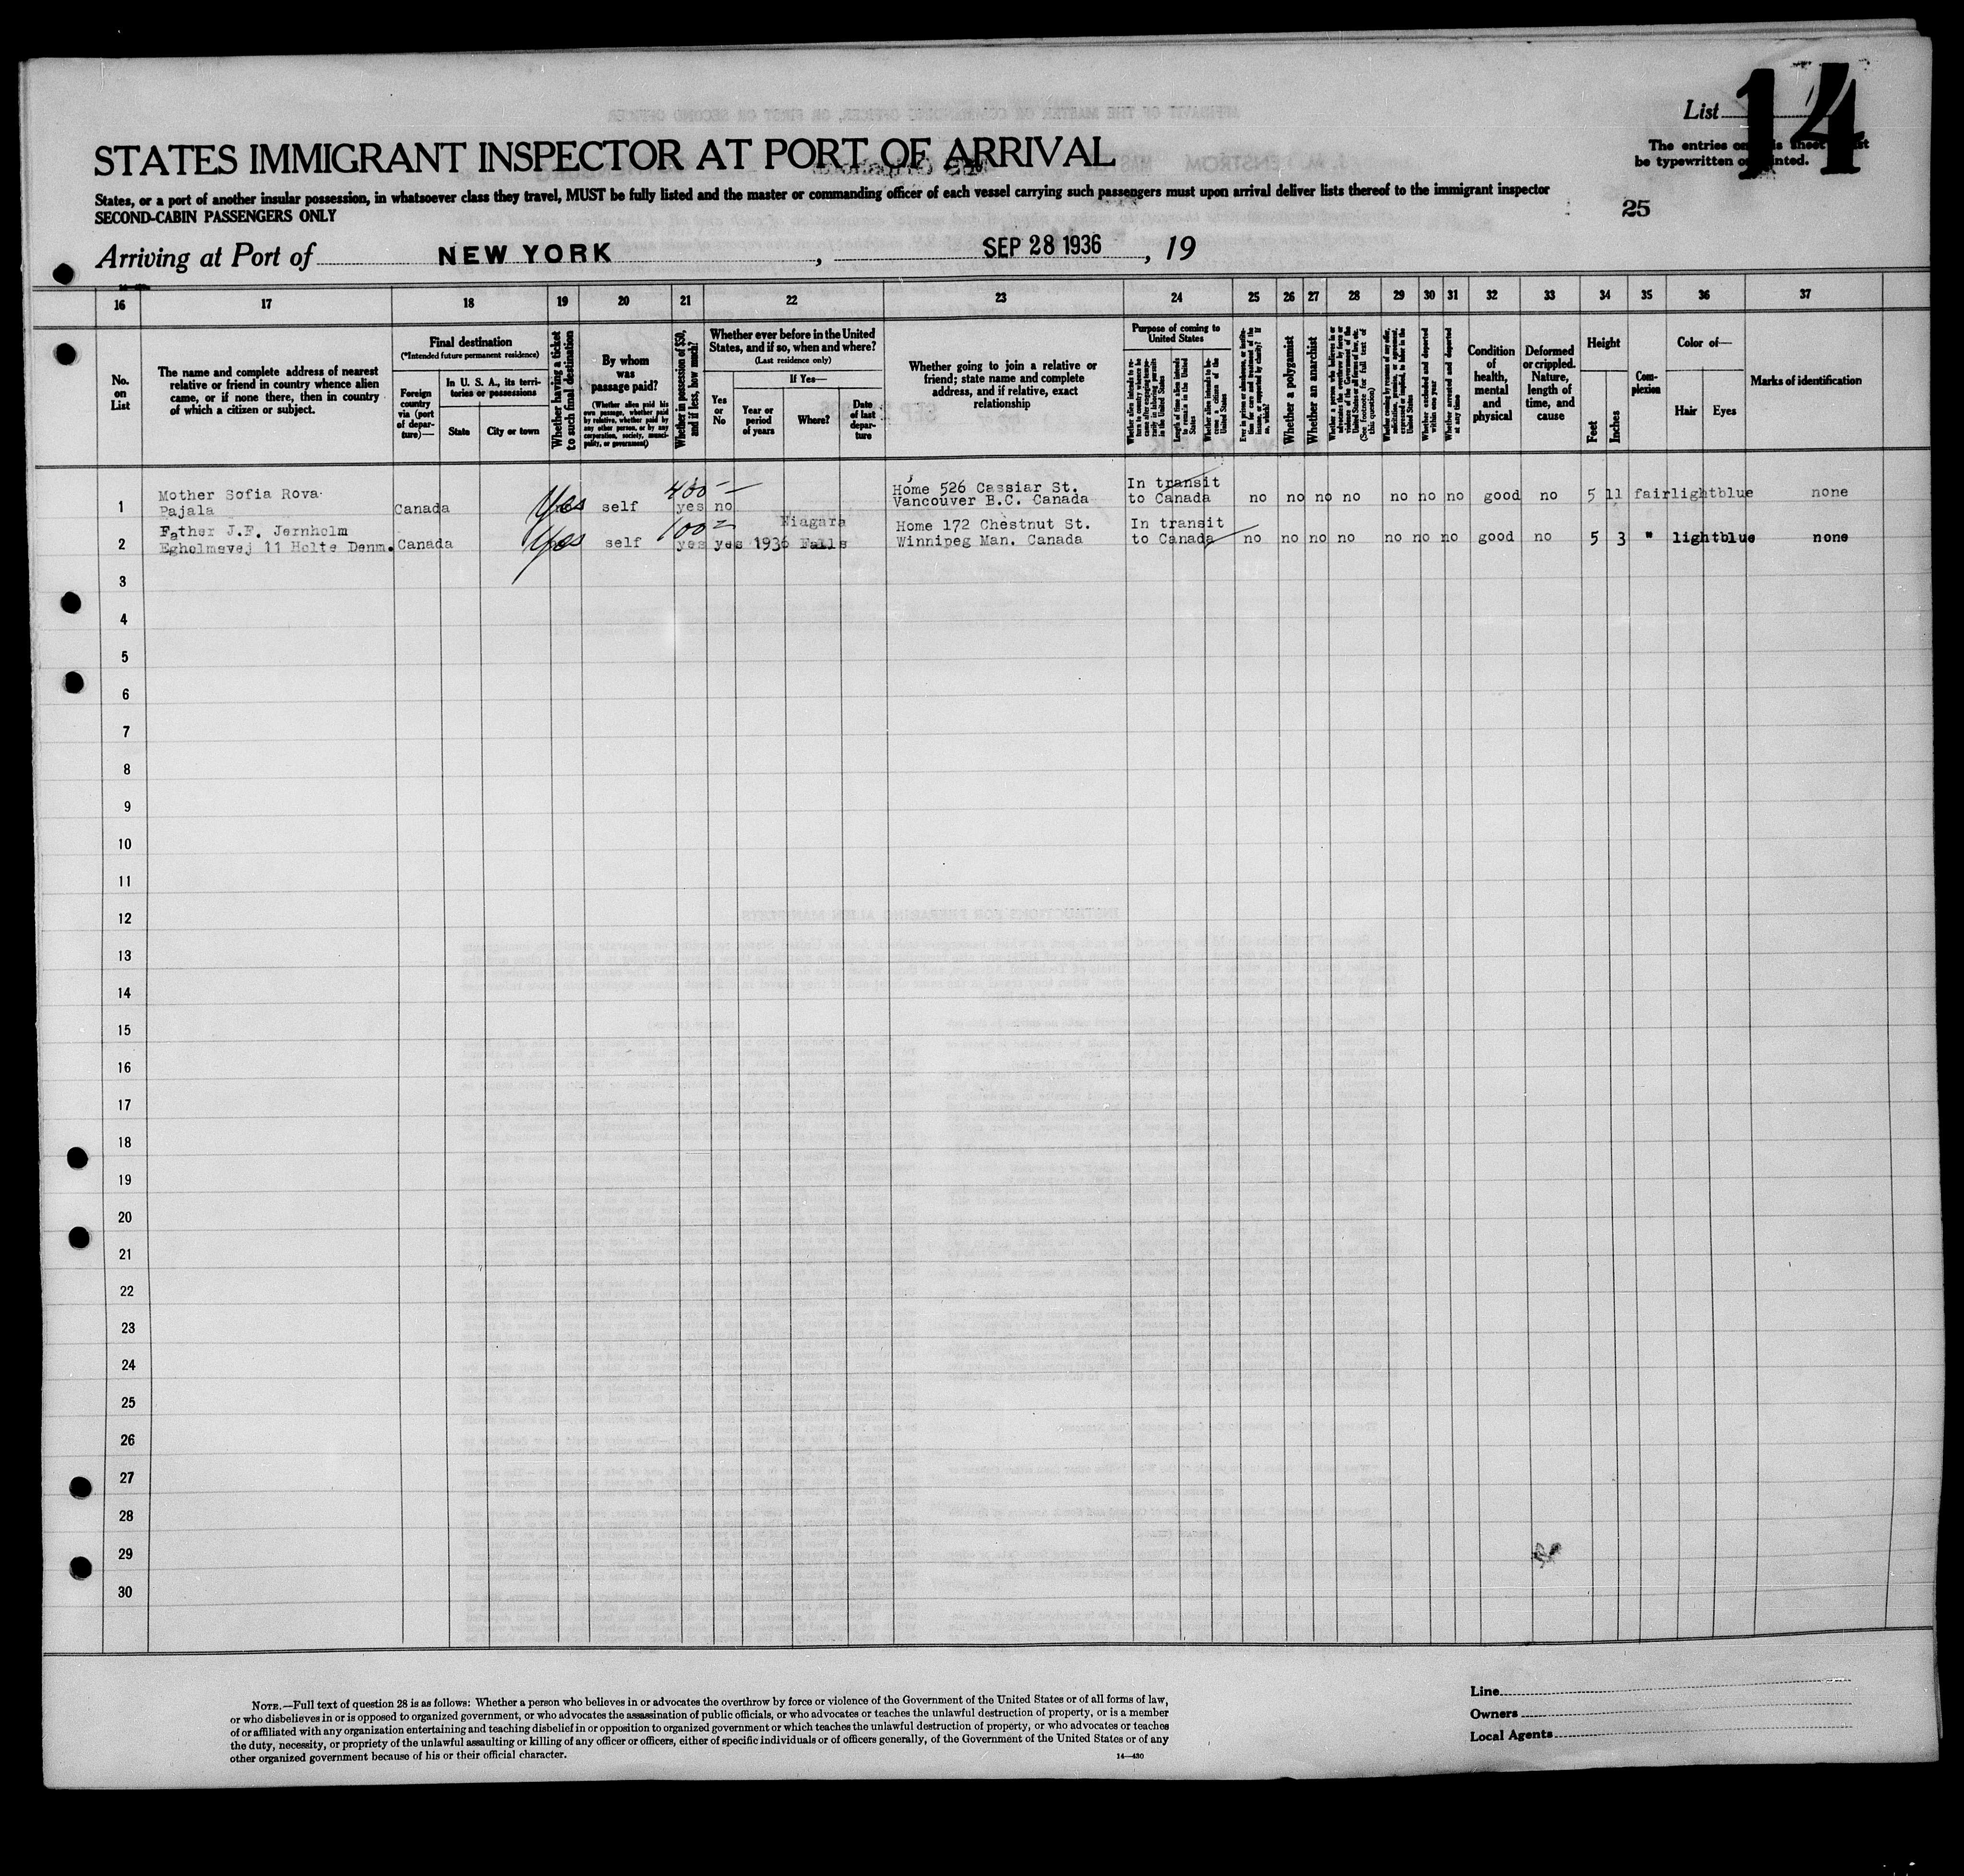 List 14
STATES IMMIGRANT INSPECTOR AT PORT OF ARRIVAL
The entries on this sheet must
be typewritten or printed.
States, or a port of another insular possession, in whatsoever class they travel, MUST be fully listed and the master or commanding officer of each vessel carrying such passengers must upon arrival deliver lists thereof to the immigrant inspector
SECOND-CABIN PASSENGERS ONLY
25
Arriving at Port of NEW YORK, SEP 28 1936, 19
16 17 18 19 20 21 22 23 24 25 26 27 28 29 30 31 32 33 34 35 36 37
No. on List
The name and complete address of nearest
relative or friend in country whence alien
came, or if none there, then in country
of which a citizen or subject.
Final destination
(*Intended future permanent residence)
Foreign country via (port of departure)—
In U. S. A., its territories or possessions
State
City or town
Whether having a ticket to such final destination
By whom was passage paid?
(Whether alien paid his own passage, whether paid by relative, whether paid by any other person, or by any corporation, society, municipality, or government)
Whether in possession of $50, and if less, how much?
Whether ever before in the United
States, and if so, when and where?
(Last residence only)
Yes or No
If Yes—
Year or period of years
Where?
Date of last departure
Whether going to join a relative or
friend; state name and complete
address, and if relative, exact
relationship
Purpose of coming to
United States
Whether a polygamist
Whether an anarchist
(See footnote for full text of this question)
Whether excluded and deported within one year
Whether arrested and deported at any time
Condition of health, mental and physical
Deformed or crippled. Nature, length of time, and cause
Height
Feet
Inches
Complexion
Color of—
Hair
Eyes
Marks of identification
1 Mother Sofia Rova Pajala Canada Yes self 400 yes no Home 526 Cassiar St. Vancouver B.C. Canada In transit to Canada no no no no no no no good no 5 11 fair light blue none
2 Father J.F. Jernholm Egholmsvej 11 Holte Denm. Canada Yes self 100 yes yes 1936 Niagara Falls Home 172 Chestnut St. Winnipeg Man. Canada In transit to Canada no no no no no no no good no 5 3 " light blue none
3
4
5
6
7
8
9
10
11
12
13
14
15
16
17
18
19
20
21
22
23
24
25
26
27
28
29
30
NOTE.—Full text of question 28 is as follows: Whether a person who believes in or advocates the overthrow by force or violence of the Government of the United States or of all forms of law,
or who disbelieves in or is opposed to organized government, or who advocates the assassination of public officials, or who advocates or teaches the unlawful destruction of property, or is a member
of or affiliated with any organization entertaining and teaching disbelief in or opposition to organized government or which teaches the unlawful destruction of property, or who advocates or teaches
the duty, necessity, or propriety of the unlawful assaulting or killing of any officer or officers, either of specific individuals or of officers generally, of the Government of the United States or of any
other organized government because of his or their official character.
14—430
Line
Owners
Local Agents